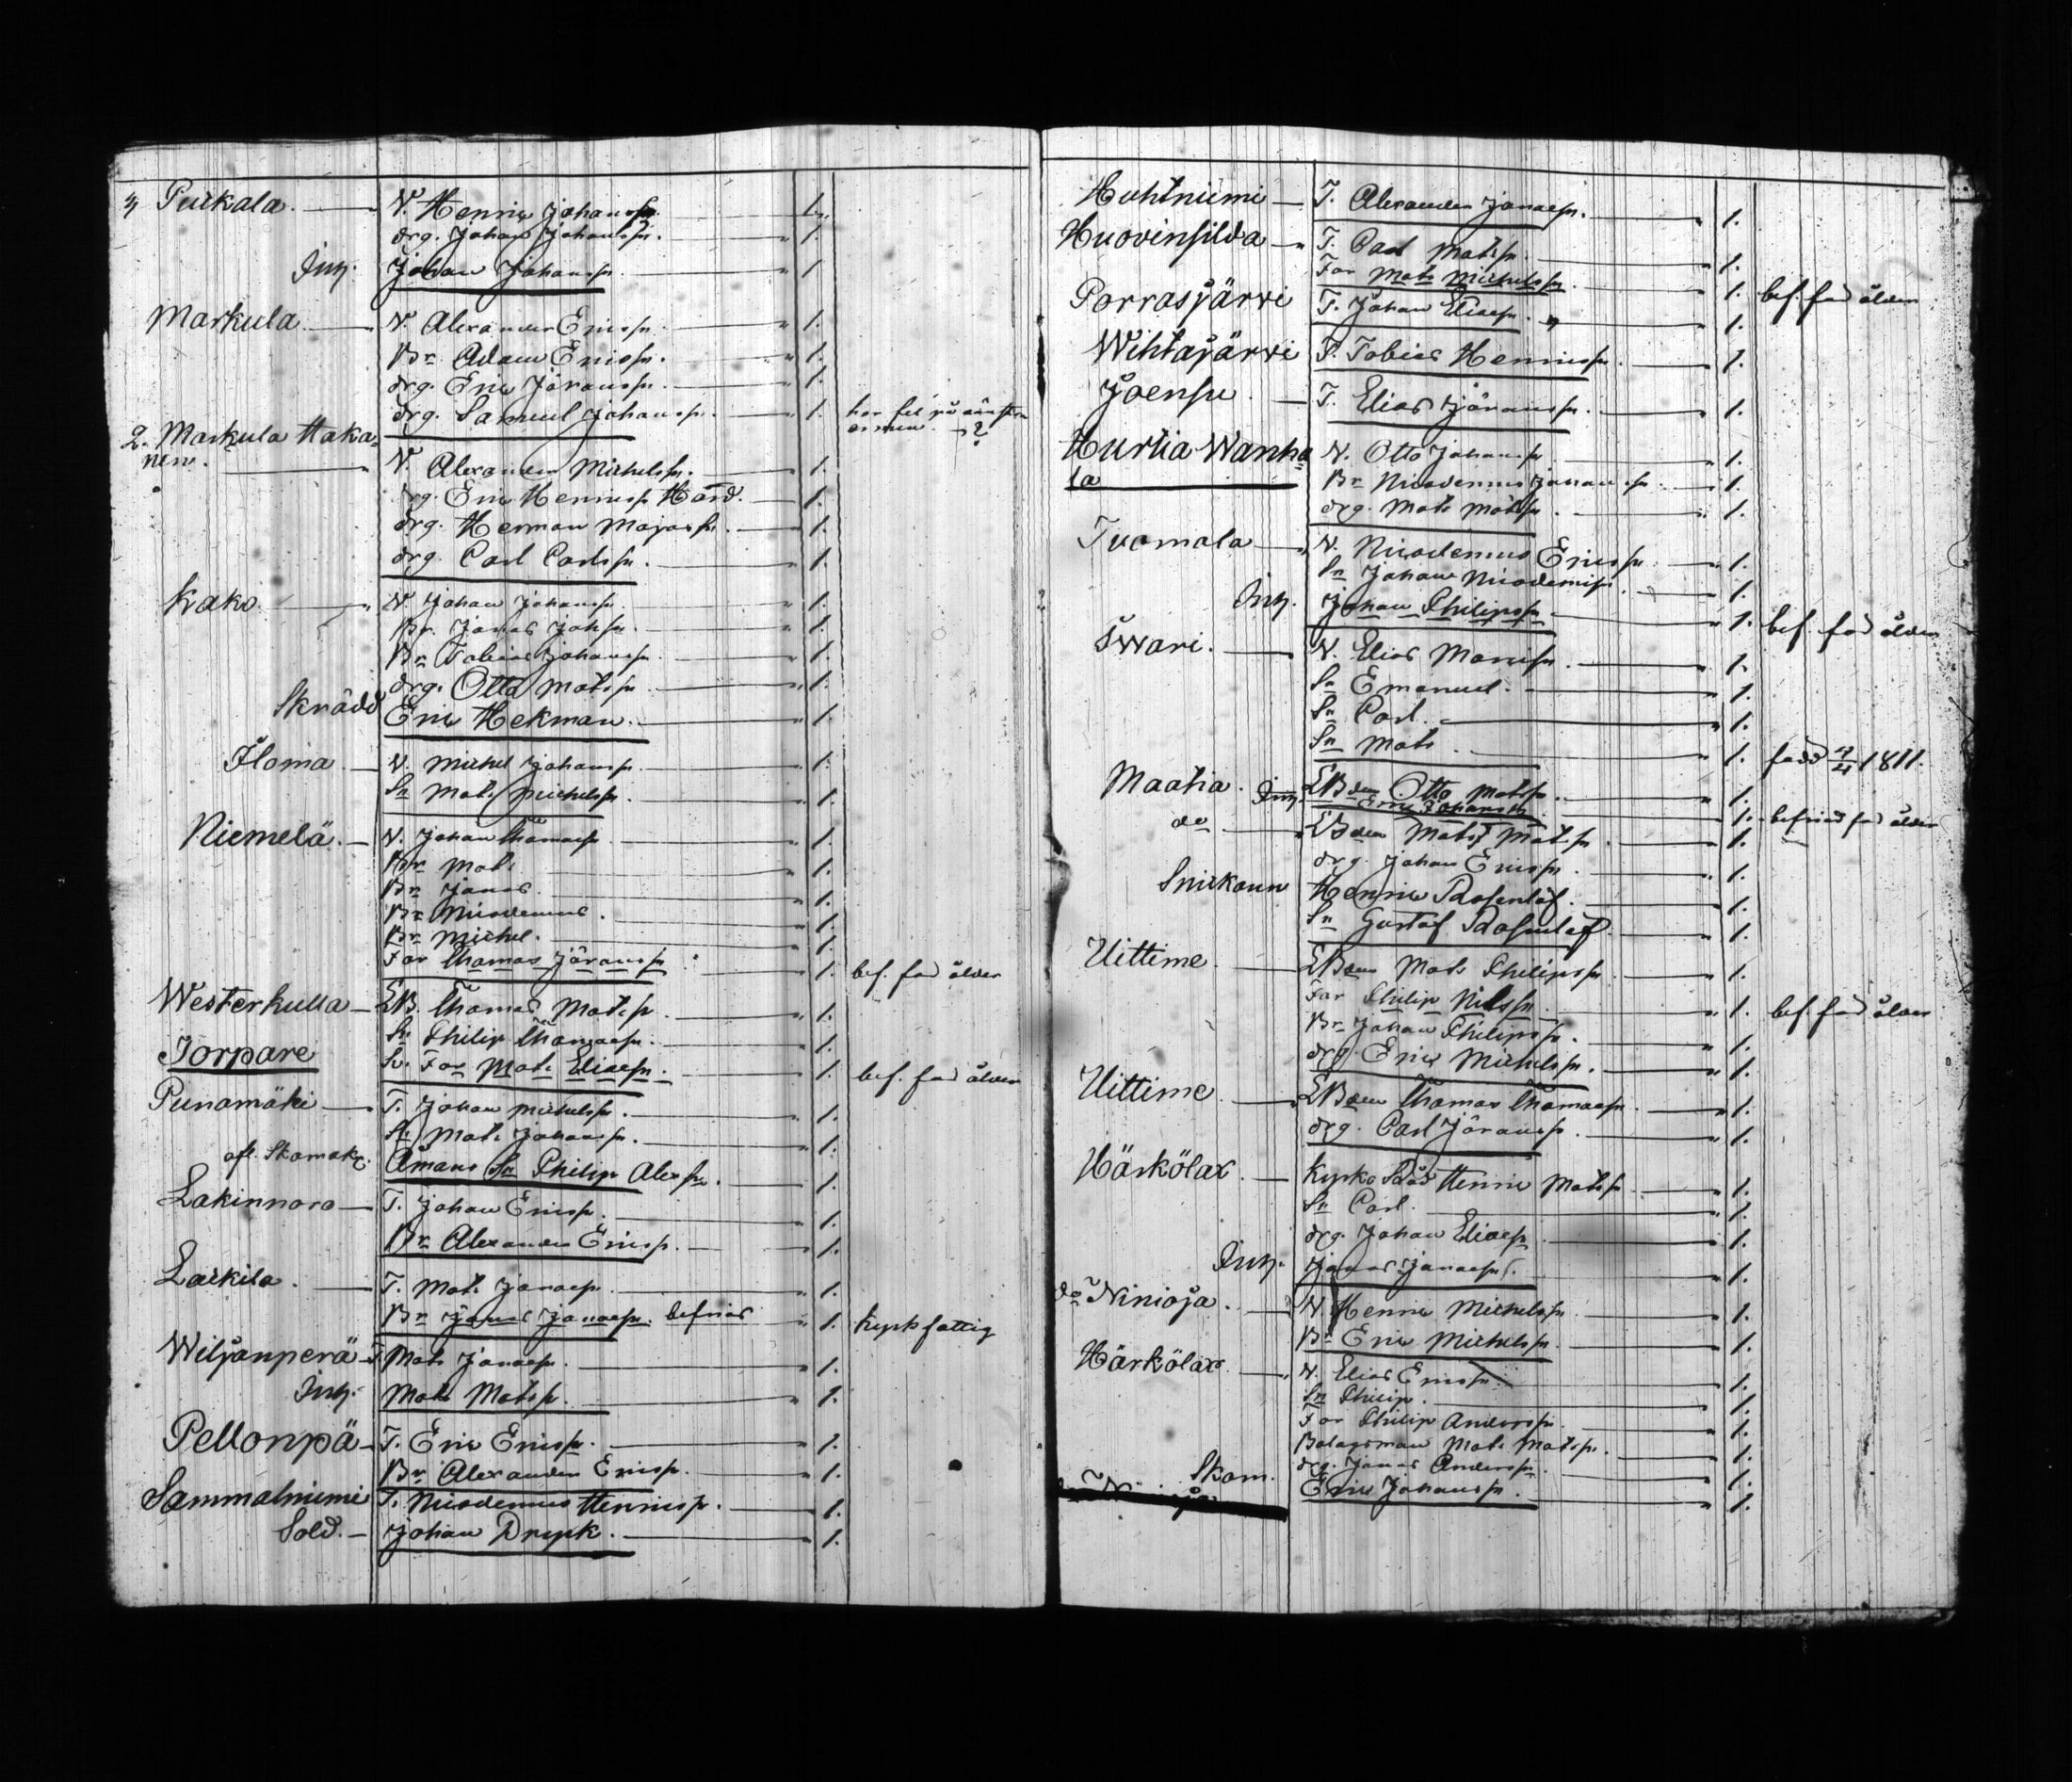 Purkala. V. Henric Johanssn. 1.
drg. Johan Johanssn. 1.
Inh. Johan Johanssn 1
Markula V. Alexander Ericssn. 1.
Br. Adam Ericssn. 1.
drg. Eric Jöranssn. 1.
drg. Samuel Johanssn. 1. har fel på
2. Markula Haka-
nen. V. Alexander Michelssn. 1.
drg. Eric Henricssn Hård. 1.
drg. Herman Majassn. 1.
drg. Carl Carlssn. 1.
Kako. V. Johan Johanssn 1.
Br. Jonas Johssn. 1.
Br Tobias Johanssn 1.
drg. Otto Matssn 1.
Skrädd Eric Hekman. 1.
Iloma V. Michel Johanssn. 1.
Sn Mats Michelssn. 1.
Niemelä. V. Johan Thomassn 1.
Br Mats 1.
Br Jonas 1.
Br Nicodemus. 1.
Br Michel. 1.
Far Thomas Jöranssn 1. bef. för ålder
Westerkulla LB. Thomas Matssn 1.
Sn Philip Thomassn. 1.
Jorpare Sv. Far Mats Eliassn. 1. bef. för ålder
Punamäki T. Johan Michelssn. 1.
Sn Mats Johanssn. 1.
afl. Skomak. Åmans Sn Philip Alexssn. 1.
Lakinnoro T. Johan Ericssn. 1.
Br Alexander Ericssn. 1.
Laikila. T. Mats Jonassn. 1.
Br Jonas Jonassn. befrias 1. Kyrk fattig
Wiljanperä T Mats Jonassn. 1.
Inh. Mats Matssn. 1.
Pellonpä T. Eric Ericssn. 1.
Br Alexander Ericssn. 1.
Sammalniemi T. Nicodemus Henricssn. 1.
Sold. Johan Drysk. 1.
Huhtniemi T. Alexander Jonassn. 1.
Huovinsilda T. Carl Matssn. 1.
Far Mats Michelssn 1. bef. för ålder
Porrasjärvi T. Johan Eliassn. 1.
Wihtajärvi T. Tobias Henricssn. 1.
Joensu. T. Elias Jöranssn. 1.
Hurtia Wanha
la V. Otto Johanssn 1.
Br Nicodemus Johanssn 1.
drg. Mats Matssn. 1.
Tuomala V. Nicodemus Ericssn 1.
Sn Johan Nicodemissn. 1.
Inh. Johan Philipssn 1. bef. för ålder
Iwari. V. Elias Mariessn. 1.
Sn Emanuel. 1.
Sn Carl. 1.
Sn Mats 1. född 7/4 1811.
Maatia. LBden Otto Matssn. 1.
Inh. Eric Johanssn 1. befrias för ålder
do LBden Mats Matssn 1.
drg. Johan Ericssn. 1.
Snickaren Henric Rosenlöf. 1.
Sn Gustaf Rosenlöf 1.
Uittime. LBden Mats Philipssn 1.
Far Philip Nilssn 1. bef. för ålder
Br Johan Philipssn. 1.
drg. Eric Michelssn. 1.
Uittime LBden Thomas Thomassn. 1.
drg. Carl Jöranssn. 1.
Härkölax. Kyrko Råd Henric Matssn 1.
Sn Carl. 1.
drg. Johan Eliassn 1.
Inh. Jonas Jonassn. 1.
do Ninioja. V. Henric Michelssn 1.
Br Eric Michelssn 1.
Härkölax. V. Elias Ericssn. 1.
Sn Philip. 1.
Far Philip Anderssn. 1.
Bolagsman Mats Matssn. 1.
drg. Jonas Anderssn. 1.
Skom. Eric Johanssn. 1.